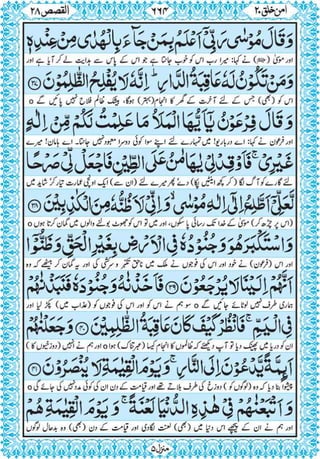 امن خلق ٢٠
٦٦٤
القصص ٢٨
وَقَالَ مُوْسٰى رَبِّیْۤ اَعْلَمُ بِمَنْ جَآءَ بِالْهُدٰى مِنْ عِنْدِهٖ
اور موسیٰ نے کہا: میرا رب اس کو خوب جانتا ہے جو اس کے پاس سے ہدایت لے کر آیا ہے اور
وَمَنْ تَكُوْنُ لَهٗ عَاقِبَةُ الدَّارِ ؕ اِنَّهٗ لَا یُفْلِحُ الظّٰلِمُوْنَ ﴿۳۷﴾
اس کو (بھی) جس کے لئے آخرت کے گھر کا انجام (بہتر) ہوگا، بیشک ظالم فلاح نہیں پائیں گے
وَقَالَ فِرْعَوْنُ یٰۤاَیُّهَا الْمَلَاُ مَا عَلِمْتُ لَكُمْ مِّنْ اِلٰهٍ
اور فرعون نے کہا: اے درباریو! میں تمہارے لئے اپنے سوا کوئی دوسرا معبود نہیں جانتا۔ اے ہامان! میرے
غَیْرِیْ ۚ فَاَوْقِدْ لِیْ یٰهَامٰنُ عَلَى الطِّیْنِ فَاجْعَلْ لِّیْ صَرْحًا
لئے گارے کو آگ لگا دے، پھر میرے لئے (ان سے) ایک اونچی عمارت تیار کر، شاید میں
لَّعَلِّیْۤ اَطَّلِعُ اِلٰۤى اِلٰهِ مُوْسٰى ۙ وَاِنِّیْ لَاَظُنُّهٗ مِنَ الْكٰذِبِیْنَ ﴿۳۸﴾
موسیٰ کے خدا تک رسائی پا سکوں، اور میں تو اس کو جھوٹ بولنے والوں میں گمان کرتا ہوں
وَاسْتَكْبَرَ هُوَ وَجُنُوْدُهٗ فِی الْاَرْضِ بِغَیْرِ الْحَقِّ وَظَنُّوْۤا
اور اس (فرعون) نے خود اور اس کی فوجوں نے ملک میں ناحق تکبر و سرکشی کی اور یہ گمان کر بیٹھے کہ وہ
اَنَّهُمْ اِلَیْنَا لَا یُرْجَعُوْنَ ﴿۳۹﴾ فَاَخَذْنٰهُ وَجُنُوْدَهٗ فَنَبَذْنٰهُمْ
ہماری طرف نہیں لوٹائے جائیں گے سو ہم نے اس کو اور اس کی فوجوں کو (عذاب میں) پکڑ لیا اور ان
فِی الْیَمِّ ۚ فَانْظُرْ كَیْفَ كَانَ عَاقِبَةُ الظّٰلِمِیْنَ ﴿۴۰﴾ وَجَعَلْنٰهُمْ
کو دریا میں پھینک دیا، تو آپ دیکھئے کہ ظالموں کا انجام کیسا ہوا اور ہم نے انہیں (دوزخیوں کا)
اَىِٕمَّةً یَّدْعُوْنَ اِلَى النَّارِ ۚ وَیَوْمَ الْقِیٰمَةِ لَا یُنْصَرُوْنَ ﴿۴۱﴾
پیشوا بنا دیا کہ وہ (لوگوں کو) دوزخ کی طرف بلاتے تھے اور قیامت کے دن ان کی کوئی مدد نہیں کی جائے گی
وَاَتْبَعْنٰهُمْ فِیْ هٰذِهِ الدُّنْیَا لَعْنَةً ۚ وَیَوْمَ الْقِیٰمَةِ هُمْ
اور ہم نے ان کے پیچھے اس دنیا میں (بھی) لعنت لگا دی اور قیامت کے دن (بھی) وہ بدحال لوگوں
منزل ۵